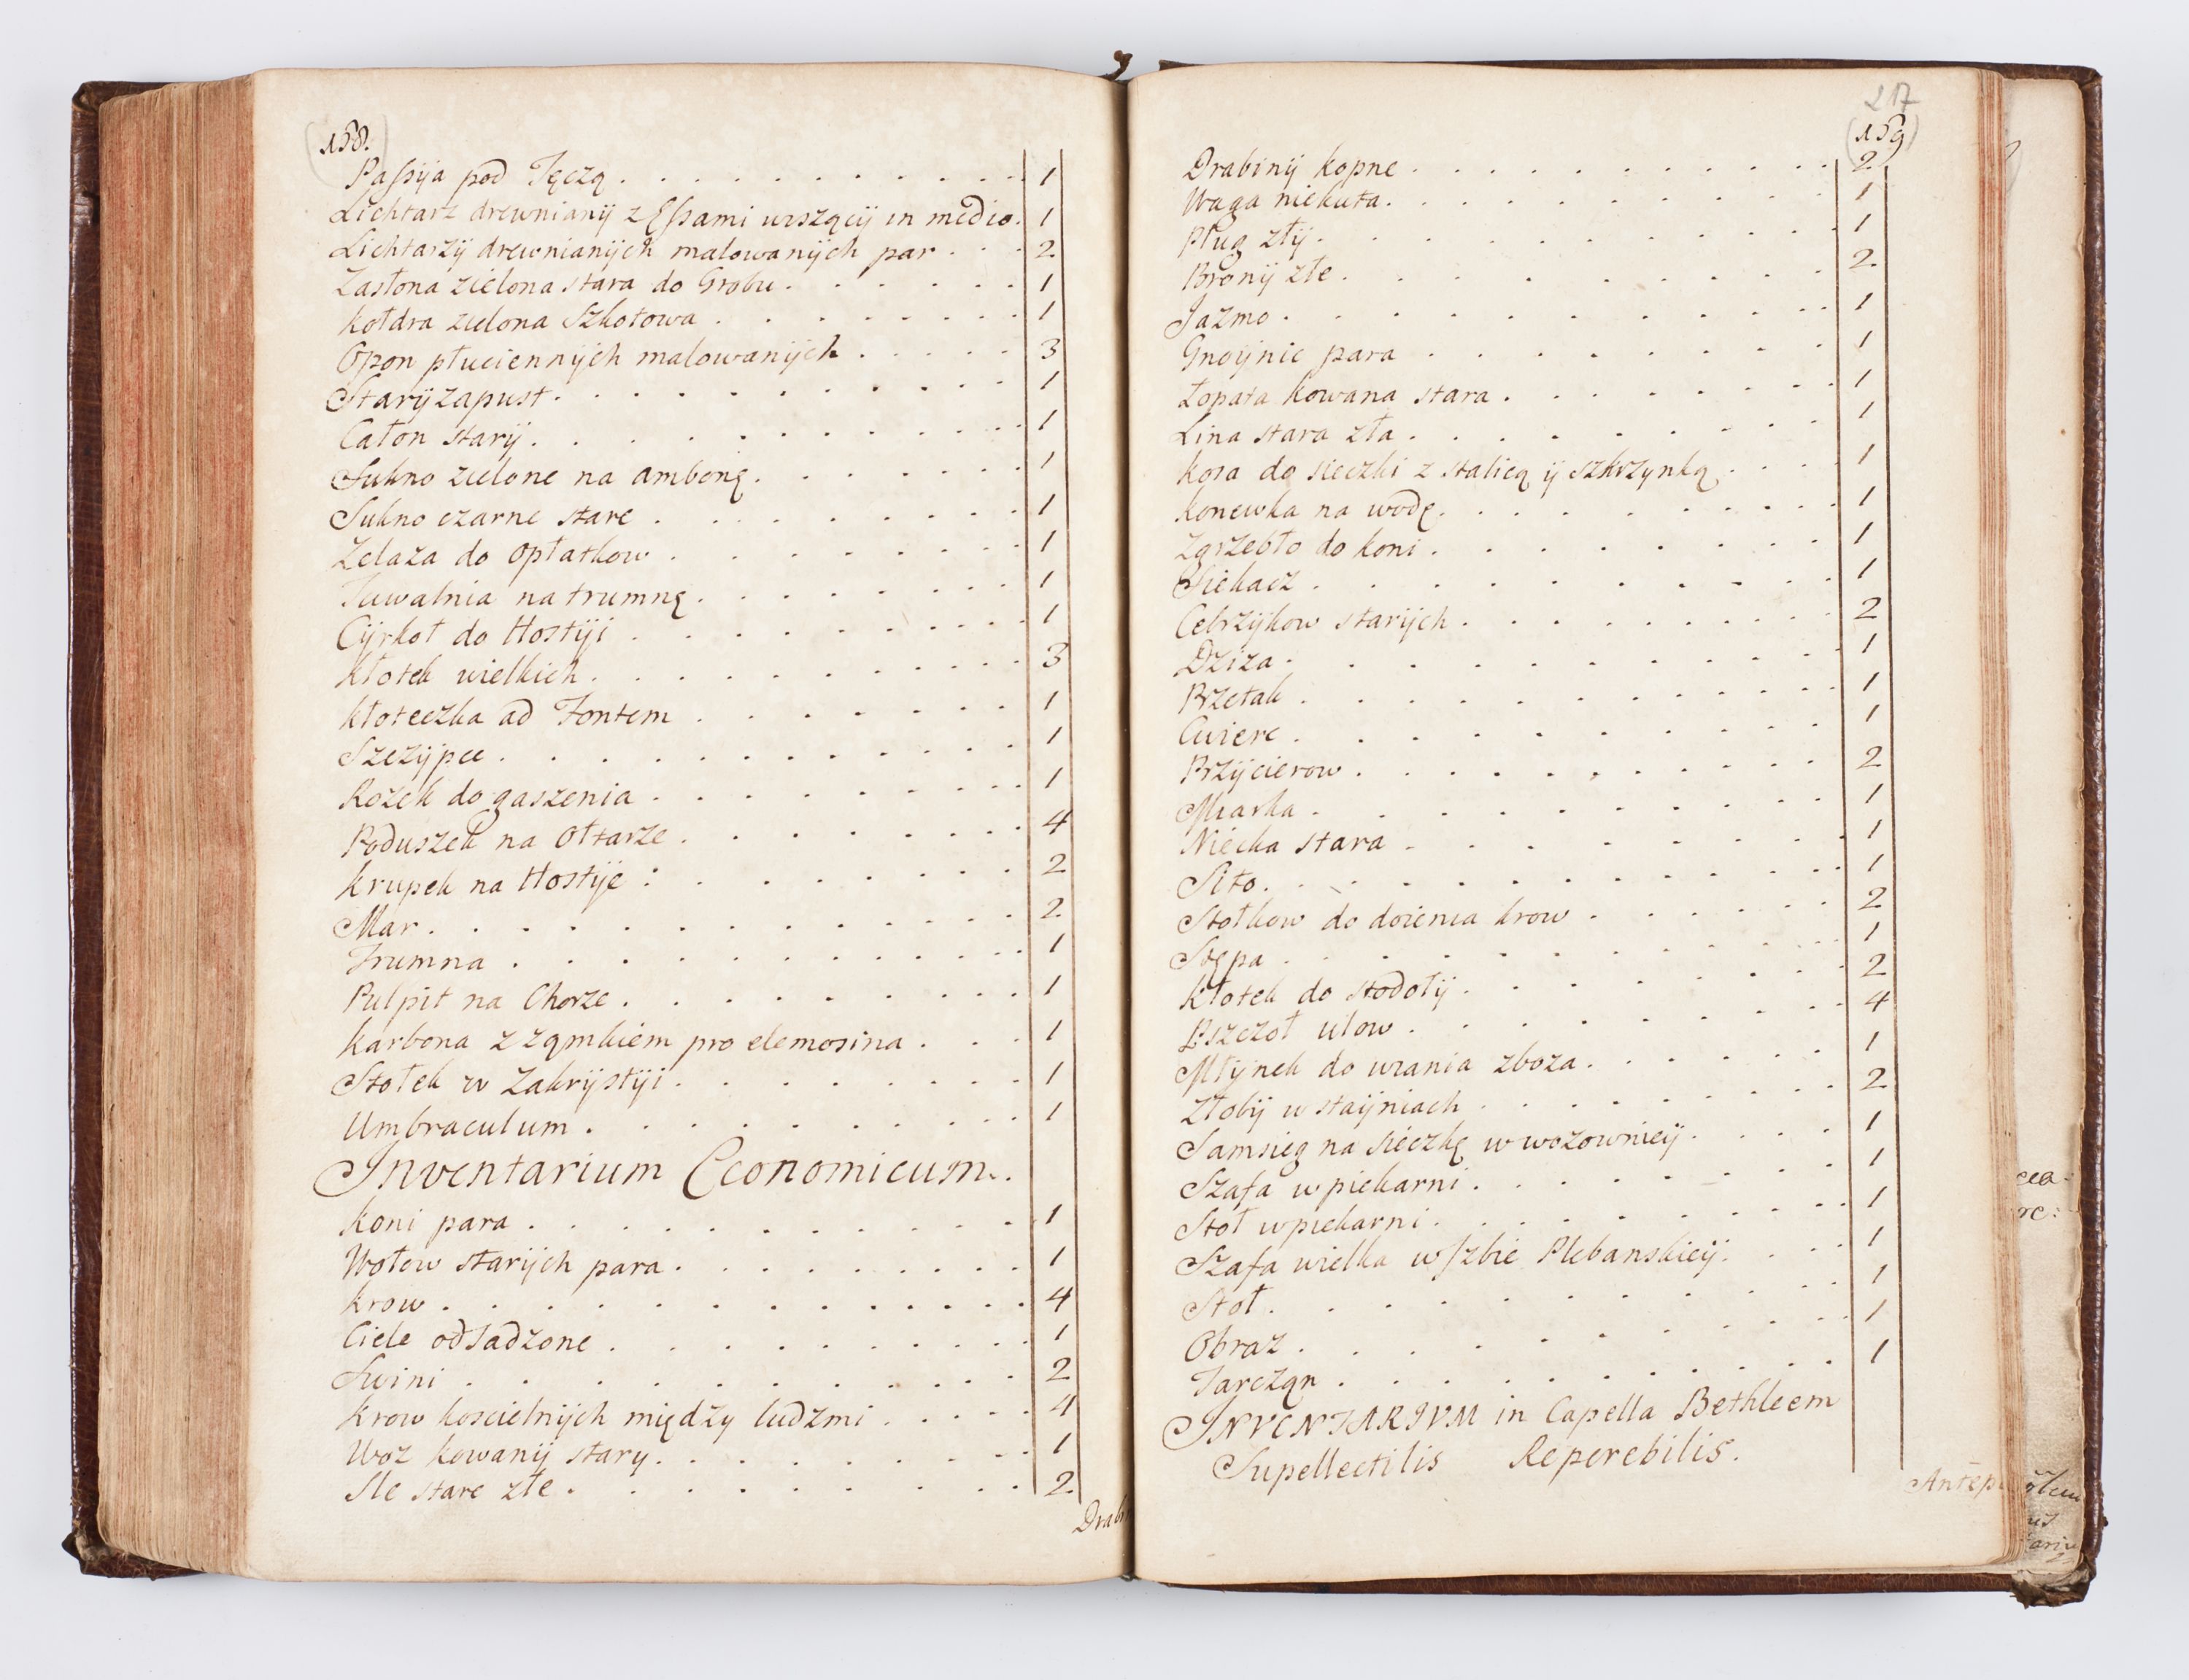 158.
Passyja pod Tęczą . . . . . . . . . . . 1
Lichtarz drewnianÿ z Essami wiszącÿ in medio. 1
Lichtarzÿ drewnianÿch malowanÿch par . . . 2
Zasłona zielona stara do Grobu . . . . . . 1
kołdra zielona Szkotowa . . . . . . . 1
Opon płuciennÿch malowanÿch . . . . . 3
Starÿ zapust . . . . . . . . . 1
Całon starÿ . . . . . . . . . . 1
Sukno zielone na ambonę . . . . . . 1
Sukno czarne stare . . . . . . . . 1
Zelaza do opłatkow . . . . . . . 1
Tuwalnia na trumnę . . . . . . . 1
Cÿrkoł do Hostÿi . . . . . . . . 1
kłotek wielkich . . . . . . . . . 3
kłoteczka ad Fontem . . . . . . . 1
Szczÿpce . . . . . . . . . . 1
Rozek do gaszenia . . . . . . . . 1
Poduszek na Ołtarze . . . . . . . 4
krupek na Hostÿe : . . . . . . . 2
Mar . . . . . . . . . . . 2
Trumna . . . . . . . . . . 1
Pulpit na Chorze . . . . . . . . 1
karbona z ząmkiem pro elemosina . . . 1
Stołek w Zakrÿstÿi . . . . . . . . 1
Umbraculum . . . . . . . . . 1
Inventarium Economicum.
koni para . . . . . . . . . . 1
Wołow starÿch para . . . . . . . . 1
krow . . . . . . . . . . . 4
Ciele odsadzone . . . . . . . . 1
Swini . . . . . . . . . . 2
krow koscielnÿch między ludzmi . . . . . 4
Woz kowanÿ stary . . . . . . . . 1
Sle stare złe . . . . . . . . . 2
Drabi
217
159
Drabinÿ kopne . . . . . . . . . 2
Waga niekuta . . . . . . . . . 1
Pług złÿ . . . . . . . . . . 1
Bronÿ złe . . . . . . . . . 2
Jazmo . . . . . . . . . . 1
Gnoÿnic para . . . . . . . . 1
Łopata kowana stara . . . . . . . 1
Lina stara zła . . . . . . . . 1
kosa do sieczki z stalicą ÿ szkrzynką . . . 1
konewka na wodę . . . . . . . . 1
Zgrzebło do koni . . . . . . . . 1
Siekacz . . . . . . . . . . 1
Cebrzÿkow starÿch . . . . . . . . 2
Dziza . . . . . . . . . . 1
Przetak . . . . . . . . . . 1
Cwierc . . . . . . . . . . 1
Przÿcierow . . . . . . . . . 2
Miarka . . . . . . . . . . 1
Niecka stara . . . . . . . . 1
Sito . . . . . . . . . . . 1
Stołkow do doienia krow . . . . . . 2
Stępa . . . . . . . . . . 1
Kłotek do stodołÿ . . . . . . . . 2
Pszczoł ulow . . . . . . . . 4
Młÿnek do wiania zboza . . . . . . 1
Złobÿ w staÿniach . . . . . . . . 2
Samsieg na sieczkę w wozownicÿ . . . . 1
Szafa w piekarni . . . . . . . 1
Stoł w piekarni . . . . . . . . 1
Szafa wielka w Jzbie Plebanskieÿ . . . 1
Stoł . . . . . . . . . . . 1
Obraz . . . . . . . . . . 1
Tarczan . . . . . . . . . . 1
INVENTARIVM in Capella Bethleem
Supellectilis Reperebilis.